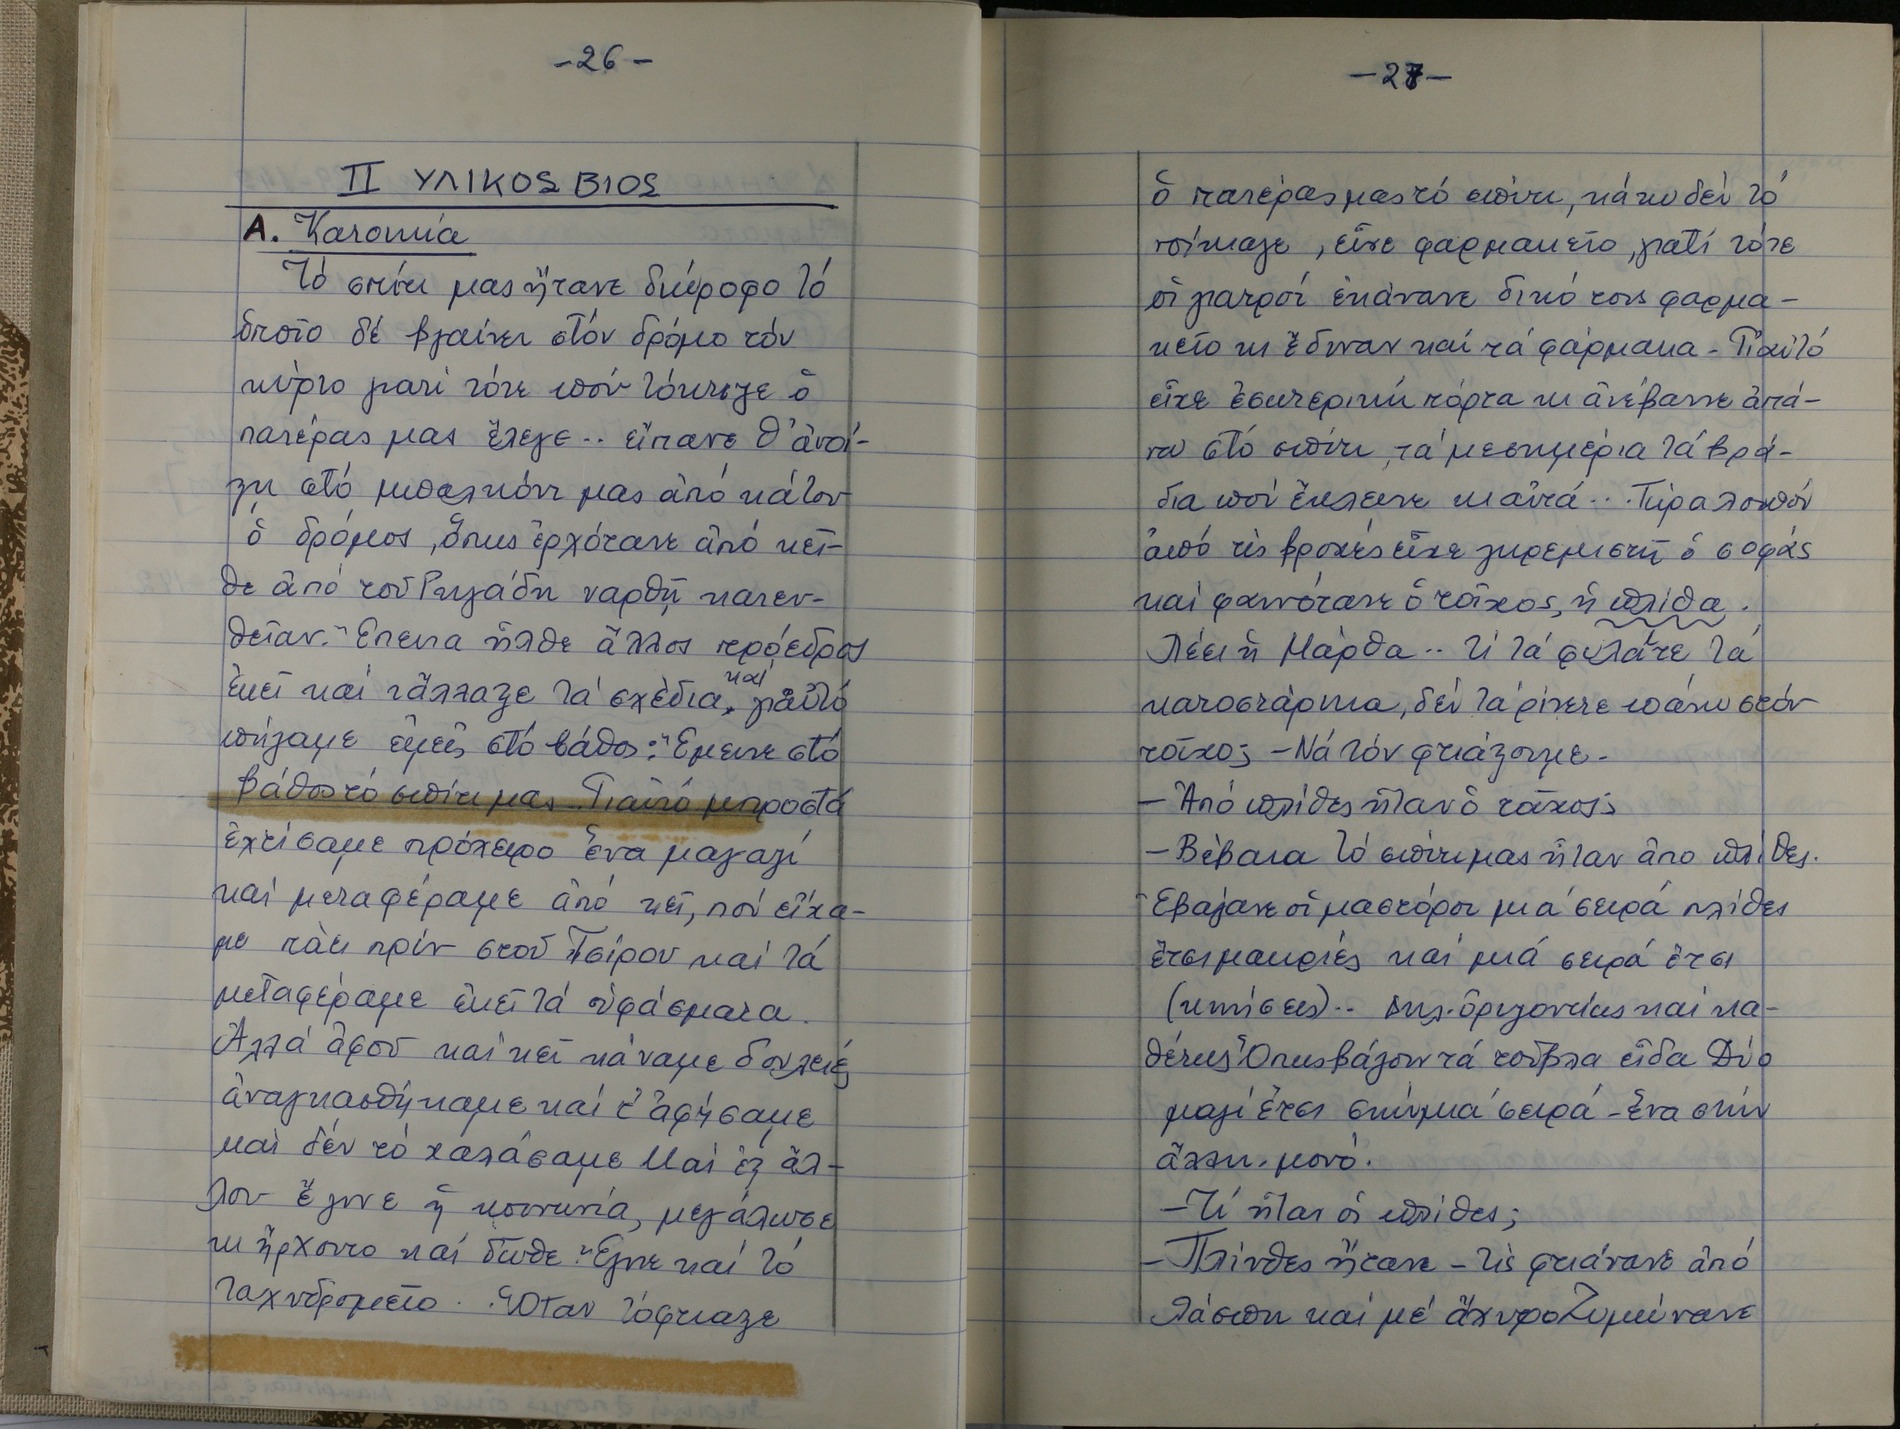 -26-
II ΥΛΙΚΟΣ ΒΙΟΣ
Α. Κατοικία
Τό σπίτι μας ἤτανε δίπροφο τό
ὁποῖο δέ βγαίνει στόν δρόμο τόν
κύριο γιατί τότε πού τόκτιζε ὁ
πατέρας μας ἔλεγε.. εἴπανε θ' ἀνοί-
ξη στό μπαλκόνι μας ἀπό κάτου
ὁ δρόμος, ὅπως ἐρχότανε ἀπό κεῖ-
θε ἀπό τοῦ ναρθῆ κατευ-
θεῖαν. Ἔπειτα ἦλθε ἄλλος πρόεδρος
ἐκεῖ καί τἄλλαξε τά σχέδια, καί γιαὐτό
πήγαμε ἐμεῖς στό βάθος. Ἔμεινε στό
βάθος τό σπίτι μας. Γιαὐτό μπροστά
ἐχτίσαμε πρόχειρο ἕνα μαγαζί
καί μεταφέραμε ἀπό κεῖ, πού εἴχα-
με πρίν στοῦ Τσίρου καί τά
μεταφέραμε ἐκεῖ τά ὑφάσματα.
Ἀλλά ἀφοῦ καί κεῖ κάναμε δουλειές
ἀναγκασθήκαμε καί τ' ἀφήσαμε
καί δέν τό χαλάσαμε Καί ἐξ ἄλ-
λου ἔγινε ἡ κοινωνία, μεγάλωσε
κι ἤρχοντο καί δῶθε. Ἔγινε καί τό
ταχυδρομεῖο. Ὅταν τόφτιαξε
-27-
ὁ πατέρας μας τό σπίτι, κάτω δέν τό
νοίκιαζε, εἶχε φαρμακεῖο, γιατί τότε
οἱ γιατροί ἐκάνανε δικό τους φαρμα-
κεῖο κι ἔδιναν καί τά φάρμακα - Γιαὐτό
εἶχε ἐσωτερική πόρτα κι ἀνέβαινε ἀπά-
νω στό σπίτι, τά μεσημέρια τά βρά-
δια πού ἔκλεινε κι αὐτά... Τώρα λοιπόν
ἀπό τίς βροχές εἶχε γκρεμιστῆ ὁ σοφάς
καί φαινότανε ὁ τοῖχος, ἡ πλίθα.
Λέει ἡ Μάρθα.. τί τά φυλᾶτε τά
κατοστάρικα, δέν τά ρίχετε πάνω στόν
τοῖχο; - Νά τόν φτιάξουμε.
- Ἀπό πλίθες ἦταν ὁ τοῖχος;
- Βέβαια τό σπίτι μας ἦταν ἀπο πλίθες.
Ἐβάζανε οἱ μαστόροι μιά σειρά πλίθες
ἔτσι μακριές καί μιά σειρά ἔτσι
(κινήσεις).. δηλ. ὁριζοντίως καί κα-
θέτως Ὅπως βάζουν τά τοῦβλα εἶδα Δύο
μαζί ἔτσι στήν μιά σειρά - ἕνα στήν
ἄλλη. μονό.
- Τί ἦταν οἱ πλίθες;
- Πλίνθες ἤτανε - τίς φτιάνανε ἀπό
λάσπη καί μέ ἄχυρο Ζυμώνανε